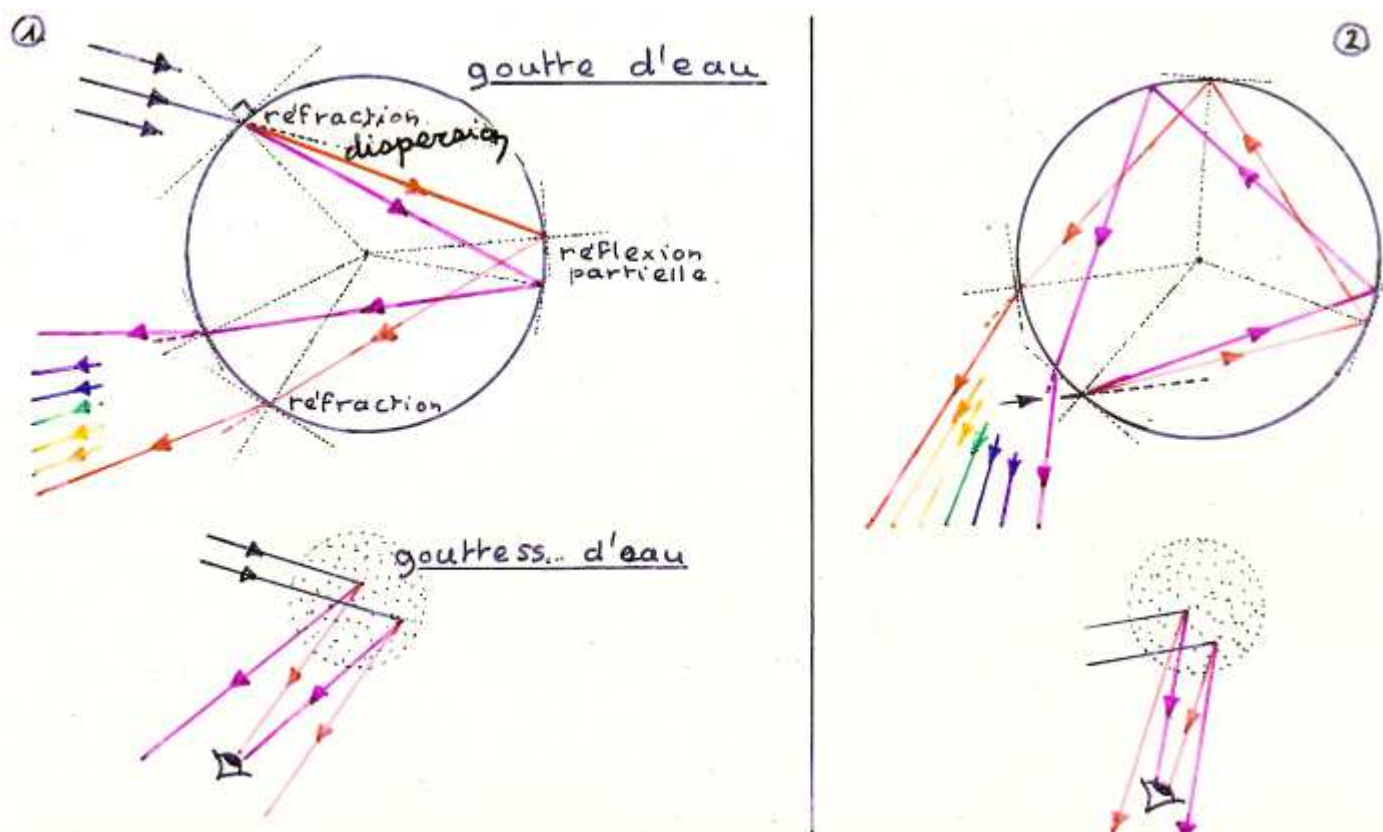 1
goutte d'eau
réfraction
dispersion
réflexion
partielle
réfraction
gouttess... d'eau
2